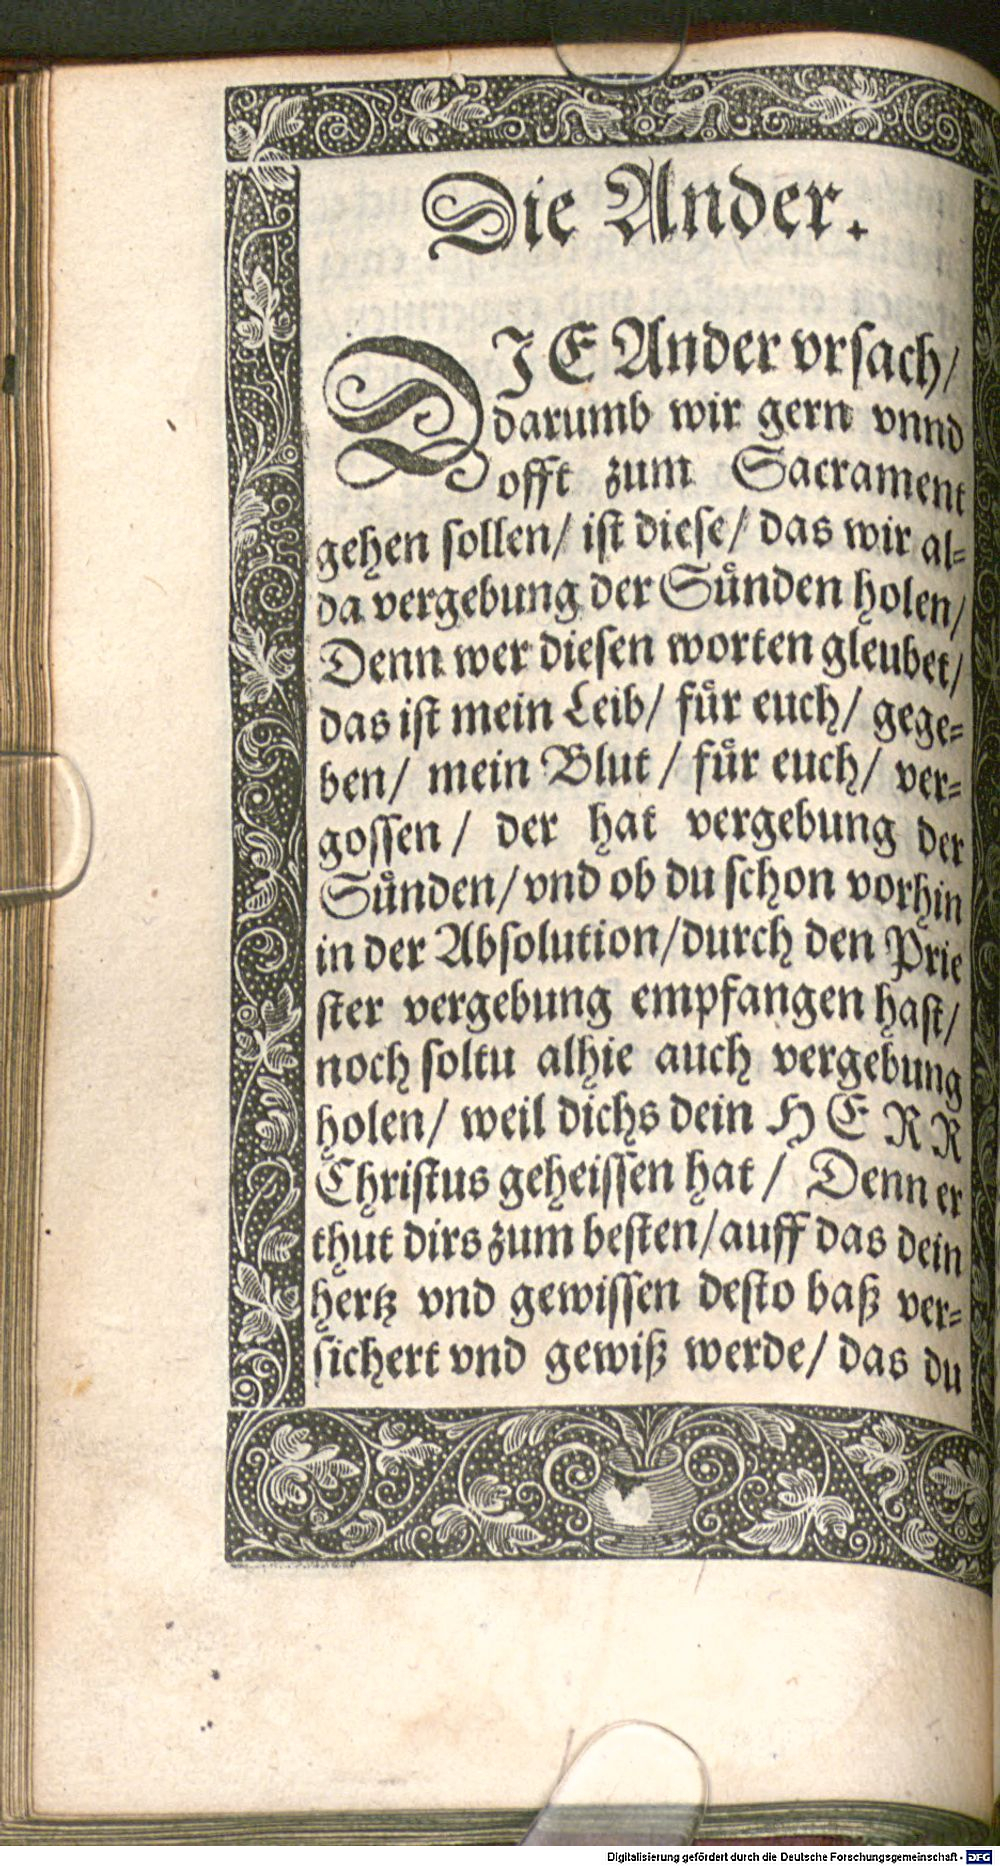 Die Ander.
DIE Ander vrsach/
darumb wir gern vnnd
offt zum Sacrament
gehen sollen/ ist diese/ das wir al-
da vergebung der Sünden holen/
Denn wer diesen worten gleubet/
das ist mein Leib/ für euch/ gege-
ben/ mein Blut/ für euch/ ver-
gossen/ der hat vergebung der
Sünden/ vnd ob du schon vorhin
in der Absolution/ durch den Prie
ster vergebung empfangen hast/
noch soltu alhie auch vergebung
holen/ weil dichs dein HERR
Christus geheissen hat/ Denn er
thut dirs zum besten/ auff das dein
hertz vnd gewissen desto baß ver-
sichert vnd gewiß werde/ das du
Digitalisierung gefördert durch die Deutsche Forschungsgemeinschaft - DFG